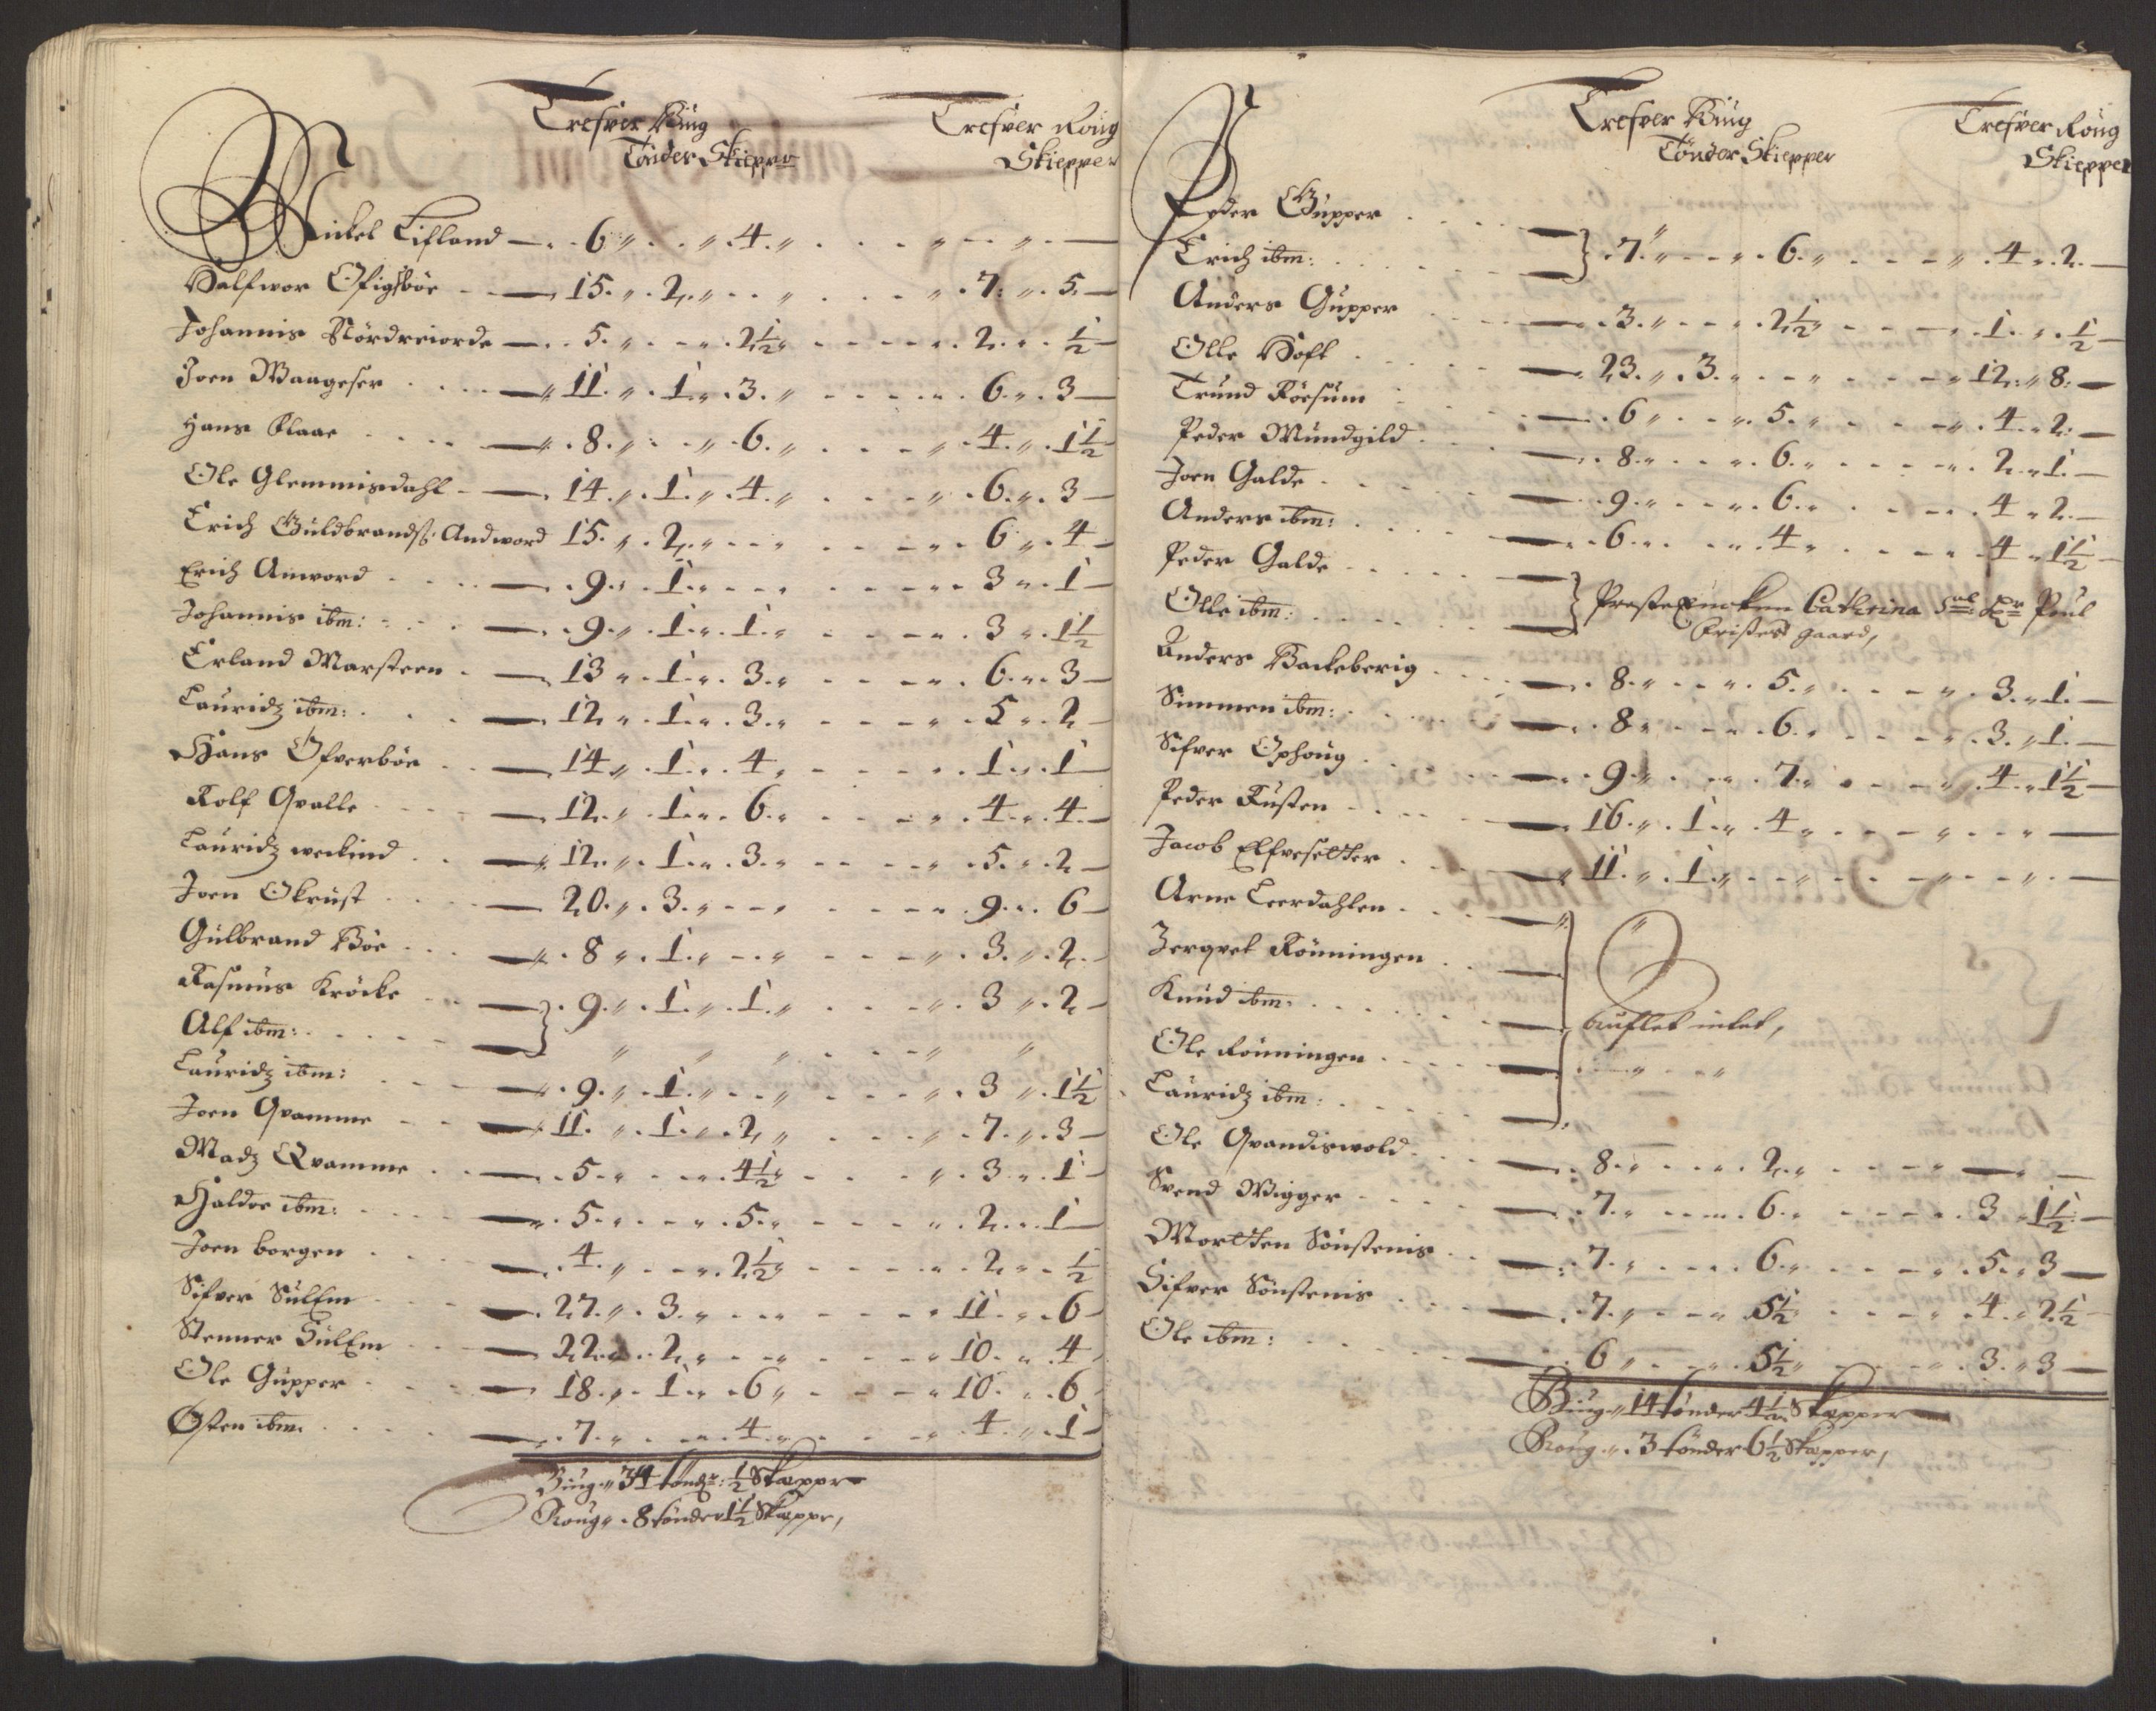 Trefver Biug Trefver Roug
Tønder Skiepper Skiepper
Mickel Lifland — 6 " 4 "
Halfwor Ofigsbøe — 15 " 2 " 7 " 5 —
Johannis Nördreiorde — 5 " 2½ 2 " ½ —
Joen Waageser — 11 " 1 " 3 " 6 " 3 —
Hans Klaae — 8 " 6 " 4 " 1½
Ole Glemmisdahl — 14 " 1 " 4 " 6 " 3 —
Erich Guldbrandsß: Andword 15 " 2 " 6 " 4 —
Erich Anword — 9 " 1 " 3 " 1 —
Johannis ibm: — 9 " 1 " 1 " 3 " 1½
Erland Marsteen — 13 " 1 " 3 " 6 " 3 —
Lauridz ibm: — 12 " 1 " 3 " 5 " 2 —
Hans Ofverbøe — 14 " 1 " 4 " 1 " 1
Rolf Qvalle — 12 " 1 " 6 " 4 " 4 —
Lauridz weckind — 12 " 1 " 3 " 5 " 2 —
Joen Okrust — 20 " 3 " 9 " 6 —
Gulbrand Bøe — 8 " 1 " 3 " 2 —
Rasmus Kröcke — } 9 " 1 " 1 " 3 " 2 —
Alf ibm: — " " " " "
Lauridz ibm: — 9 " 1 " 3 " 1½
Joen Qvamme — 11 " 1 " 2 " 7 " 3 —
Madz Qvamme — 5 " 4½ " 3 " 1 —
Haldoe ibm: — 5 " 5 " 2 " 1 —
Joen borgen — 4 " 2½ " 2 " ½
Sifver Sulem — 27 " 3 " 11 " 6 —
Stenner Sulem — 22 " 2 " 10 " 4
Ole Gupper — 18 " 1 " 6 " 10 " 6
Østen ibm. — 7 " 4 " 4 " 1 —
Biug " 34 tønd: ½ Skæppe
Roug " 8 tønder 1½ Skæppe,
Trefver Biug Trefver Roug
Tønder Skiepper Skiepper
Peder Gupper —
Erich ibm: — } 7 " 6 " 4 " 2 —
Anders Gupper — 3 " 2½ " 1 " ½ —
Olle Hofl — 23 " 3 " 12 " 8 —
Trund Röesum — 6 " 5 " 4 " 2 —
Peder Mundgild — 8 " 6 " 2 " 1 —
Joen Galde — 9 " 6 " 4 " 2 —
Anders ibm: — 6 " 4 " 4 " 1½ —
Peder Galde — } Præste Encken Cathrina Sal: Hr Poul
Olle ibm: — Kristes gaard,
Anders Backeberig — 8 " 5 " 3 " 1 —
Simmen ibm: — 8 " 6 " 3 " 1 —
Sifver Ophoug — 9 " 7 " 4 " 1½ —
Peder Rusten — 16 " 1 " 4 " —
Jacob Elfvesetter — 11 " 1 " —
Arne Leerdahlen — "
Zerqvel Rönningen —
Knud ibm: — bruflet intet,
Ole Rönningen — "
Lauridz ibm: —
Ole Qvandiswold — 8 " 2 " —
Svend Wigger — 7 " 6 " 3 " 1½ —
Mortten Sönstenis — 7 " 6 " 5 " 3 —
Sifver Sönstenis — 7 " 5½ 4 " 2½ —
Ole ibm: — 6 " 5½ " 3 " 3 —
Biug " 14 tønder 4½ Skæpper
Roug " 3 tønder 6½ Skæpper,